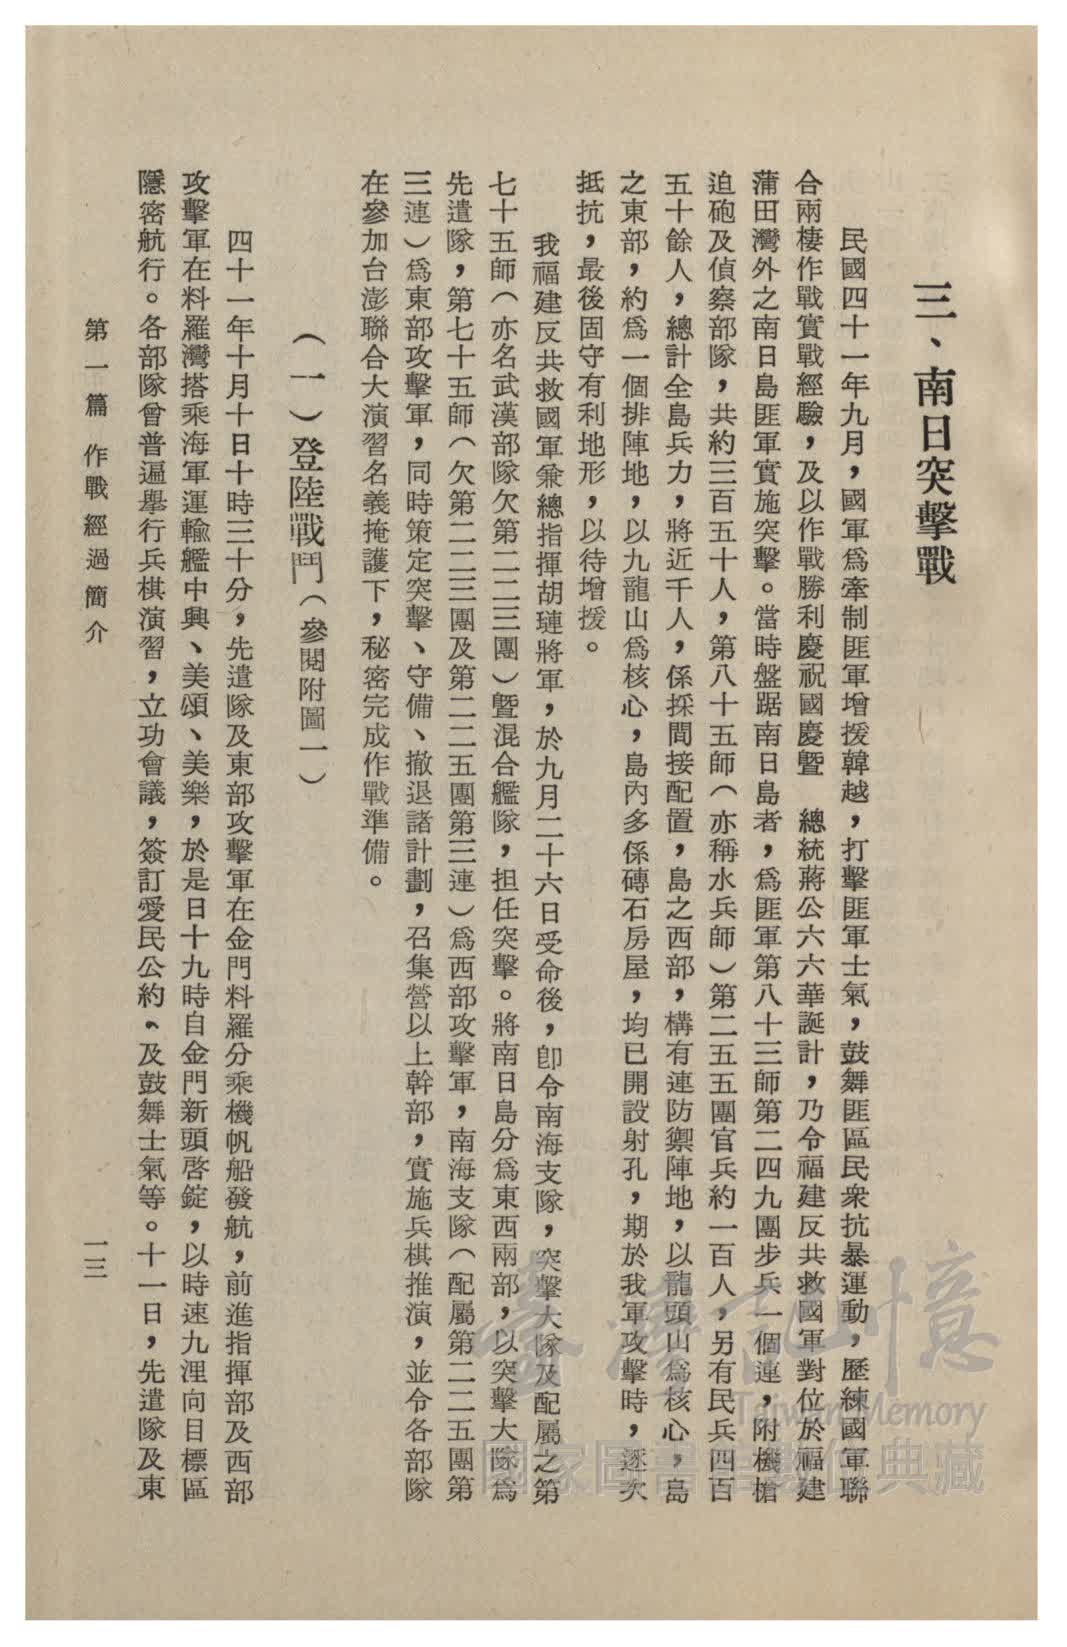 三、南日突擊戰
民國四十一年九月，國軍爲牽制匪軍增援韓越，打擊匪軍士氣，鼓舞匪區民衆抗暴運動，歷練國軍聯
合兩棲作戰實戰經驗，及以作戰勝利慶祝國慶暨　總統蔣公六六華誕計，乃令福建反共救國軍對位於福建
蒲田灣外之南日島匪軍實施突擊。當時盤踞南日島者，爲匪軍第八十三師第二四九團步兵一個連，附機槍
迫砲及偵察部隊，共約三百五十人，第八十五師（亦稱水兵師）第二五五團官兵約一百人，另有民兵四百
五十餘人，總計全島兵力，將近千人，係採間接配置，島之西部，構有連防禦陣地，以龍頭山爲核心，島
之東部，約爲一個排陣地，以九龍山爲核心，島內多係磚石房屋，均已開設射孔，期於我軍攻擊時，逐次
抵抗，最後固守有利地形，以待增援。
我福建反共救國軍兼總指揮胡璉將軍，於九月二十六日受命後，卽令南海支隊，突擊大隊及配屬之第
七十五師（亦名武漢部隊欠第二二三團）暨混合艦隊，担任突擊。將南日島分爲東西兩部，以突擊大隊爲
先遣隊，第七十五師（欠第二二三團及第二二五團第三連）爲西部攻擊軍，南海支隊（配屬第二二五團第
三連）爲東部攻擊軍，同時策定突擊、守備、撤退諸計劃，召集營以上幹部，實施兵棋推演，並令各部隊
在參加台澎聯合大演習名義掩護下，秘密完成作戰準備。
（一）登陸戰鬥（參閱附圖一）
四十一年十月十日十時三十分，先遣隊及東部攻擊軍在金門料羅分乘機帆船發航，前進指揮部及西部
攻擊軍在料羅灣搭乘海軍運輸艦中興、美頌、美樂，於是日十九時自金門新頭啓錠，以時速九浬向目標區
隱密航行。各部隊曾普遍舉行兵棋演習，立功會議，簽訂愛民公約、及鼓舞士氣等。十一日，先遣隊及東
第一篇　作戰經過簡介
一三
臺灣記憶
Taiwan Memory
國家圖書館數位典藏